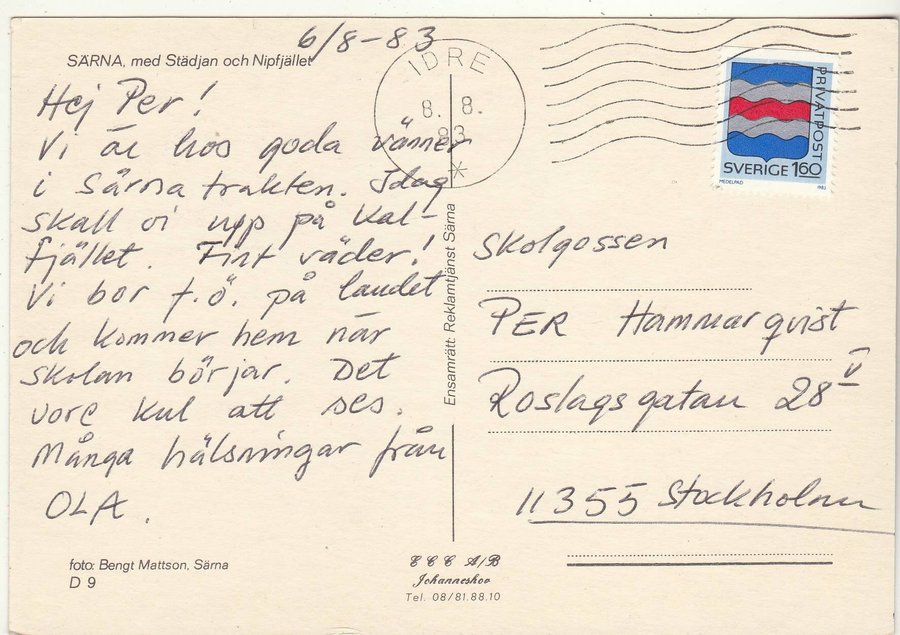 6/8-83
SÄRNA, med Städjan och Nipfjället
Hej Per!
Vi är hos goda vänner
i Särna trakten. Idag
skall vi upp på kal-
fjället. Fint väder!
Vi bor f.ö. på landet
och kommer hem när
skolan börjar. Det
vore kul att ses.
Många hälsningar från
OLA.
foto: Bengt Mattson, Särna
D 9
Ensamrätt: Reklamtjänst Särna
ECC A/B
Johanneshov
Tel. 08/81.88.10
IDRE
8. 8.
83
PRIVATPOST
SVERIGE 160
MEDELPAD 1983
Skolgossen
PER Hammarqvist
Roslagsgatan 28 V
11355 Stockholm